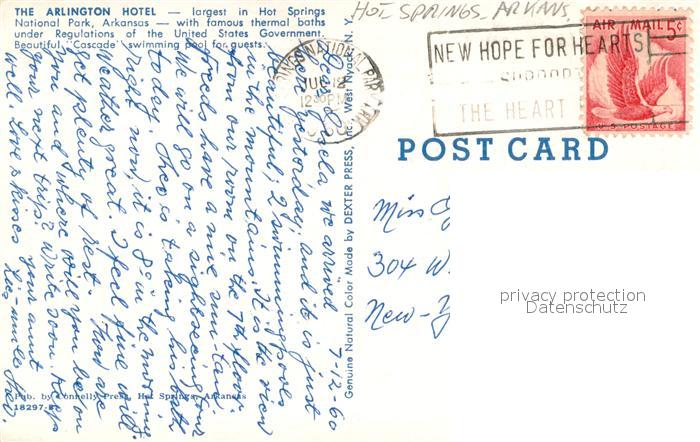 THE ARLINGTON HOTEL — largest in Hot Springs
National Park, Arkansas — with famous thermal baths
under Regulations of the United States Government.
Beautiful "Cascade" swimming pool for guests.
HOT SPRINGS - ARKANS.
NEW HOPE FOR HEARTS
SUPPORT
THE HEART
AIR MAIL 5¢
U.S. POSTAGE
NATIONAL PARK
JUL 12
POST CARD
Miss
304 W.
New-Y
privacy protection
Datenschutz
Genuine Natural Color Made by DEXTER PRESS, Inc., West Nyack, N. Y.
7-12-60
we arrived
here yesterday, and it is just
beautiful; 2 swimming pools
in the mountains. It is the view
from our room on the 7th floor.
have a nice sun-tan.
We will go on a sightseeing tour
today. is taking his bath
right now, it is 8 in the morning
Weather great. I feel fine, will
get plenty of rest. How are
you and where will you be on
your next trip? Write soon. Keep
well. Love &
your aunt
Pub. by Connelly Press, Hot Springs, Arkansas
18297-B